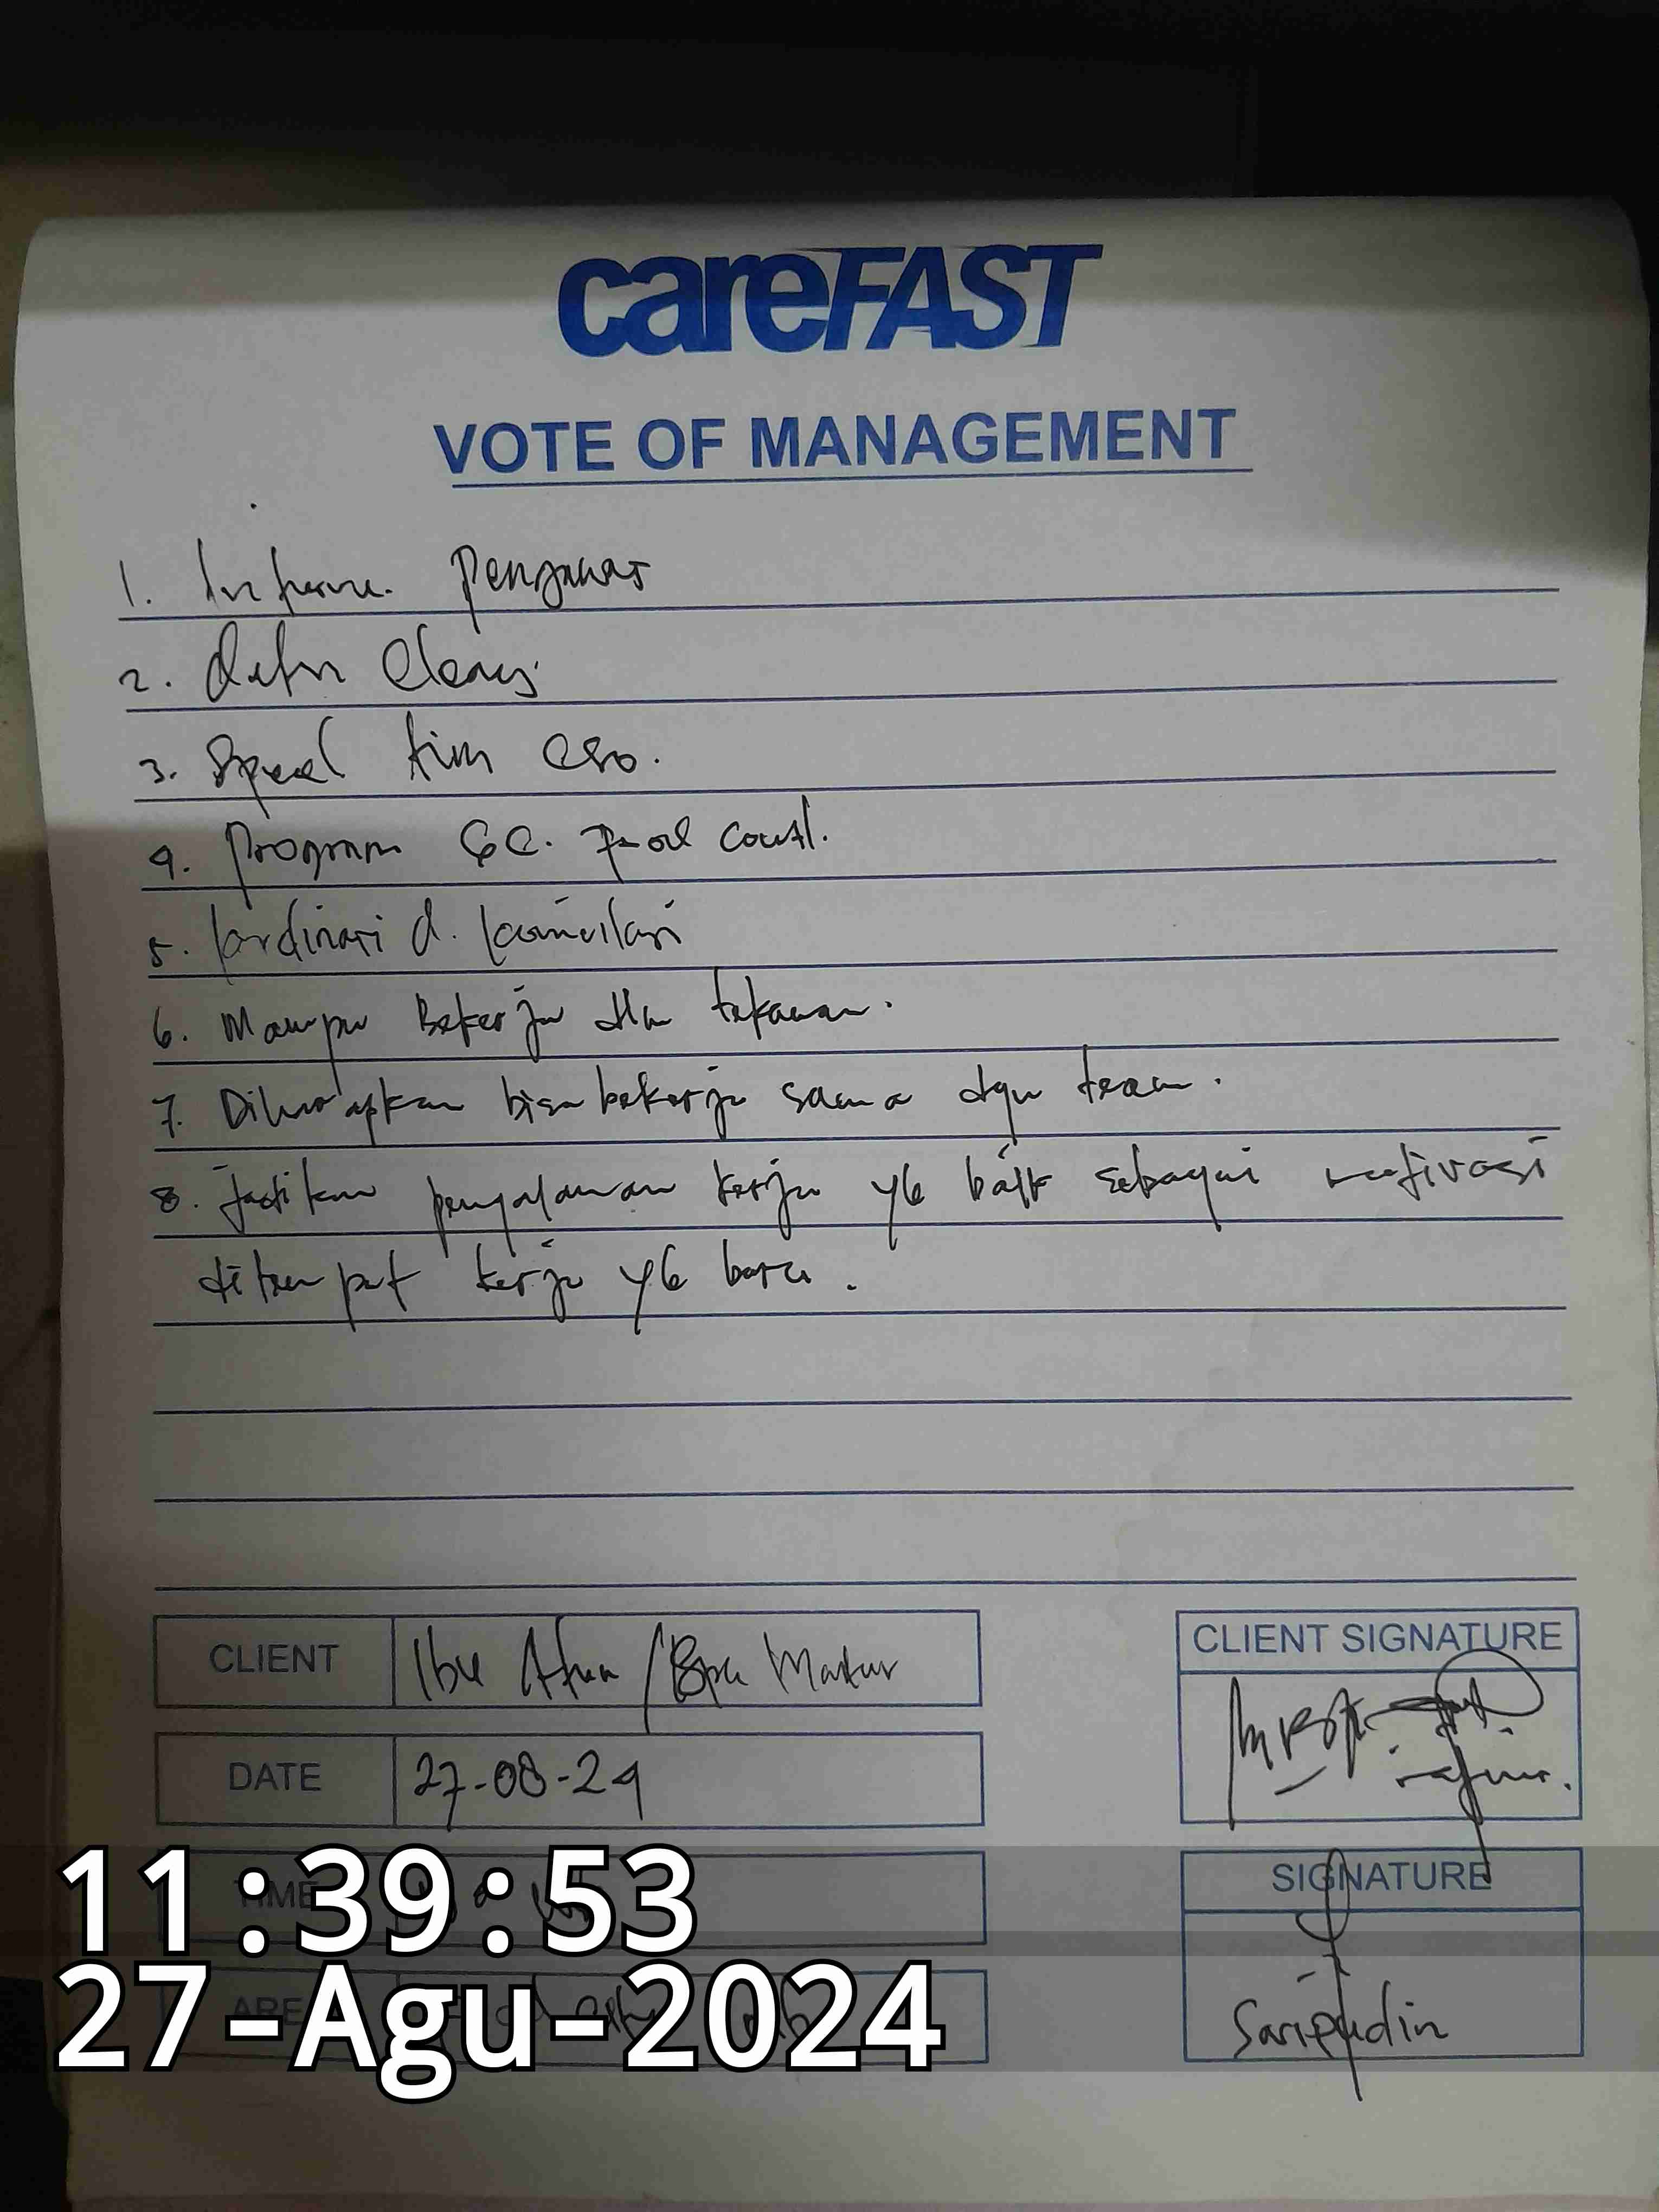 careFAST
VOTE OF MANAGEMENT
1. Pengawas
2. Detail Cleaning
3. Speed tim cso.
4. Program GC. Food Court.
5. kordinasi d. komunikasi
6. Mampu Bekerja dlm tekanan.
7. Diharapkan bisa bekerja sama dgn team.
8. Jadikan pengalaman kerja yg baik sebagai motivasi
ditempat kerja yg baru.
CLIENT
Ibu /Bpk
CLIENT SIGNATURE
DATE
27-08-24
TIME
11:39:53
SIGNATURE
AREA
27-Agu-2024
Saripudin